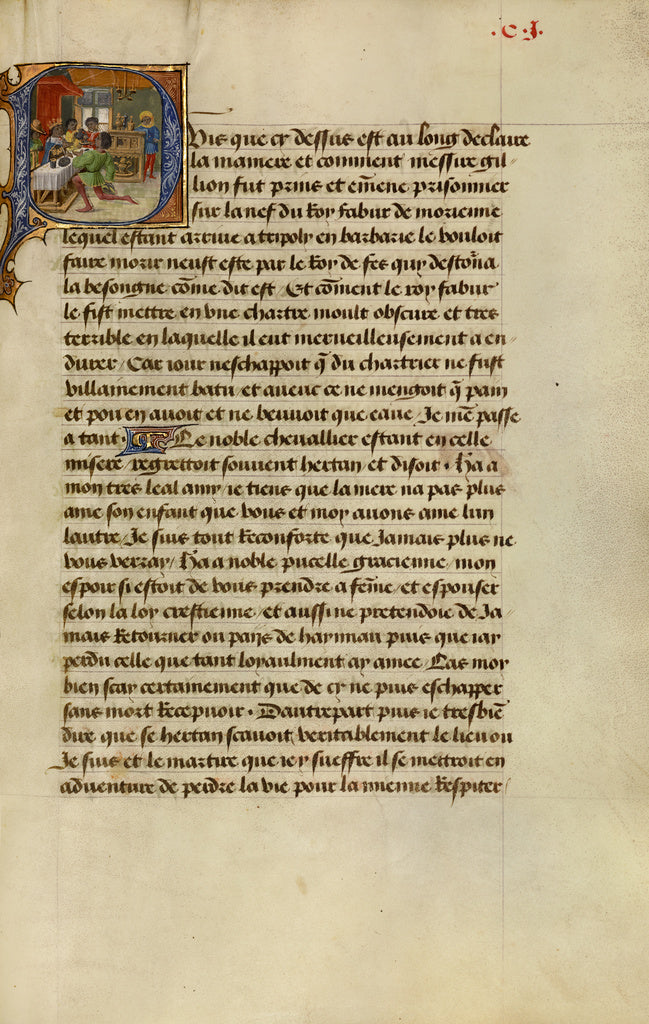 .C.J.
Puis que cy dessus est au long declaire
la maniere et comment messire gil-
lion fut prins et em̄ene prisonnier
sur la nef du Roy fabur de morienne
lequel estant arriue a tripoly en barbarie le vouloit
faire morir neust este par le Roy de fes quy destorna
la besongne cōme dit est / Et cōment le roy fabur
le fist mettre en vne chartre moult obscure et tres
terrible en laquelle il eut merueilleusement a en
durer / Car iour neschappoit q̄ du chartrier ne fust
villainement batu / et auenc ce ne mengoit q̄ pain
et pou en auoit et ne beuuoit que eaue / Je me passe
a tant · Le noble cheuallier estant en celle
misere regrettoit souuent hertan et disoit · Ha a
mon tres leal amy ie tiens que la mere na pas plus
ame son enfant que vous et moy auons ame lun
lautre / Je suis tout Reconforte que Jamais plus ne
vous verray / Ha a noble pucelle gracienne mon
espoir si estoit de vous prendre a fem̄e / et espouser
selon la loy crestienne / et aussi ne pretendoie de Ja-
mais Retourner ou pays de haynnau puis que iay
perdu celle que tant loyaulment ay amee / Las moy
bien scay certainement que de cy ne puis eschapper
sans mort Recepuoir · Dautrepart puis ie tresbiē
dire que se hertan scauoit veritablement le lieu ou
Je suis et le martire que iey sueffre il se mettroit en
aduenture de perdre la vie pour la mienne Respiter /